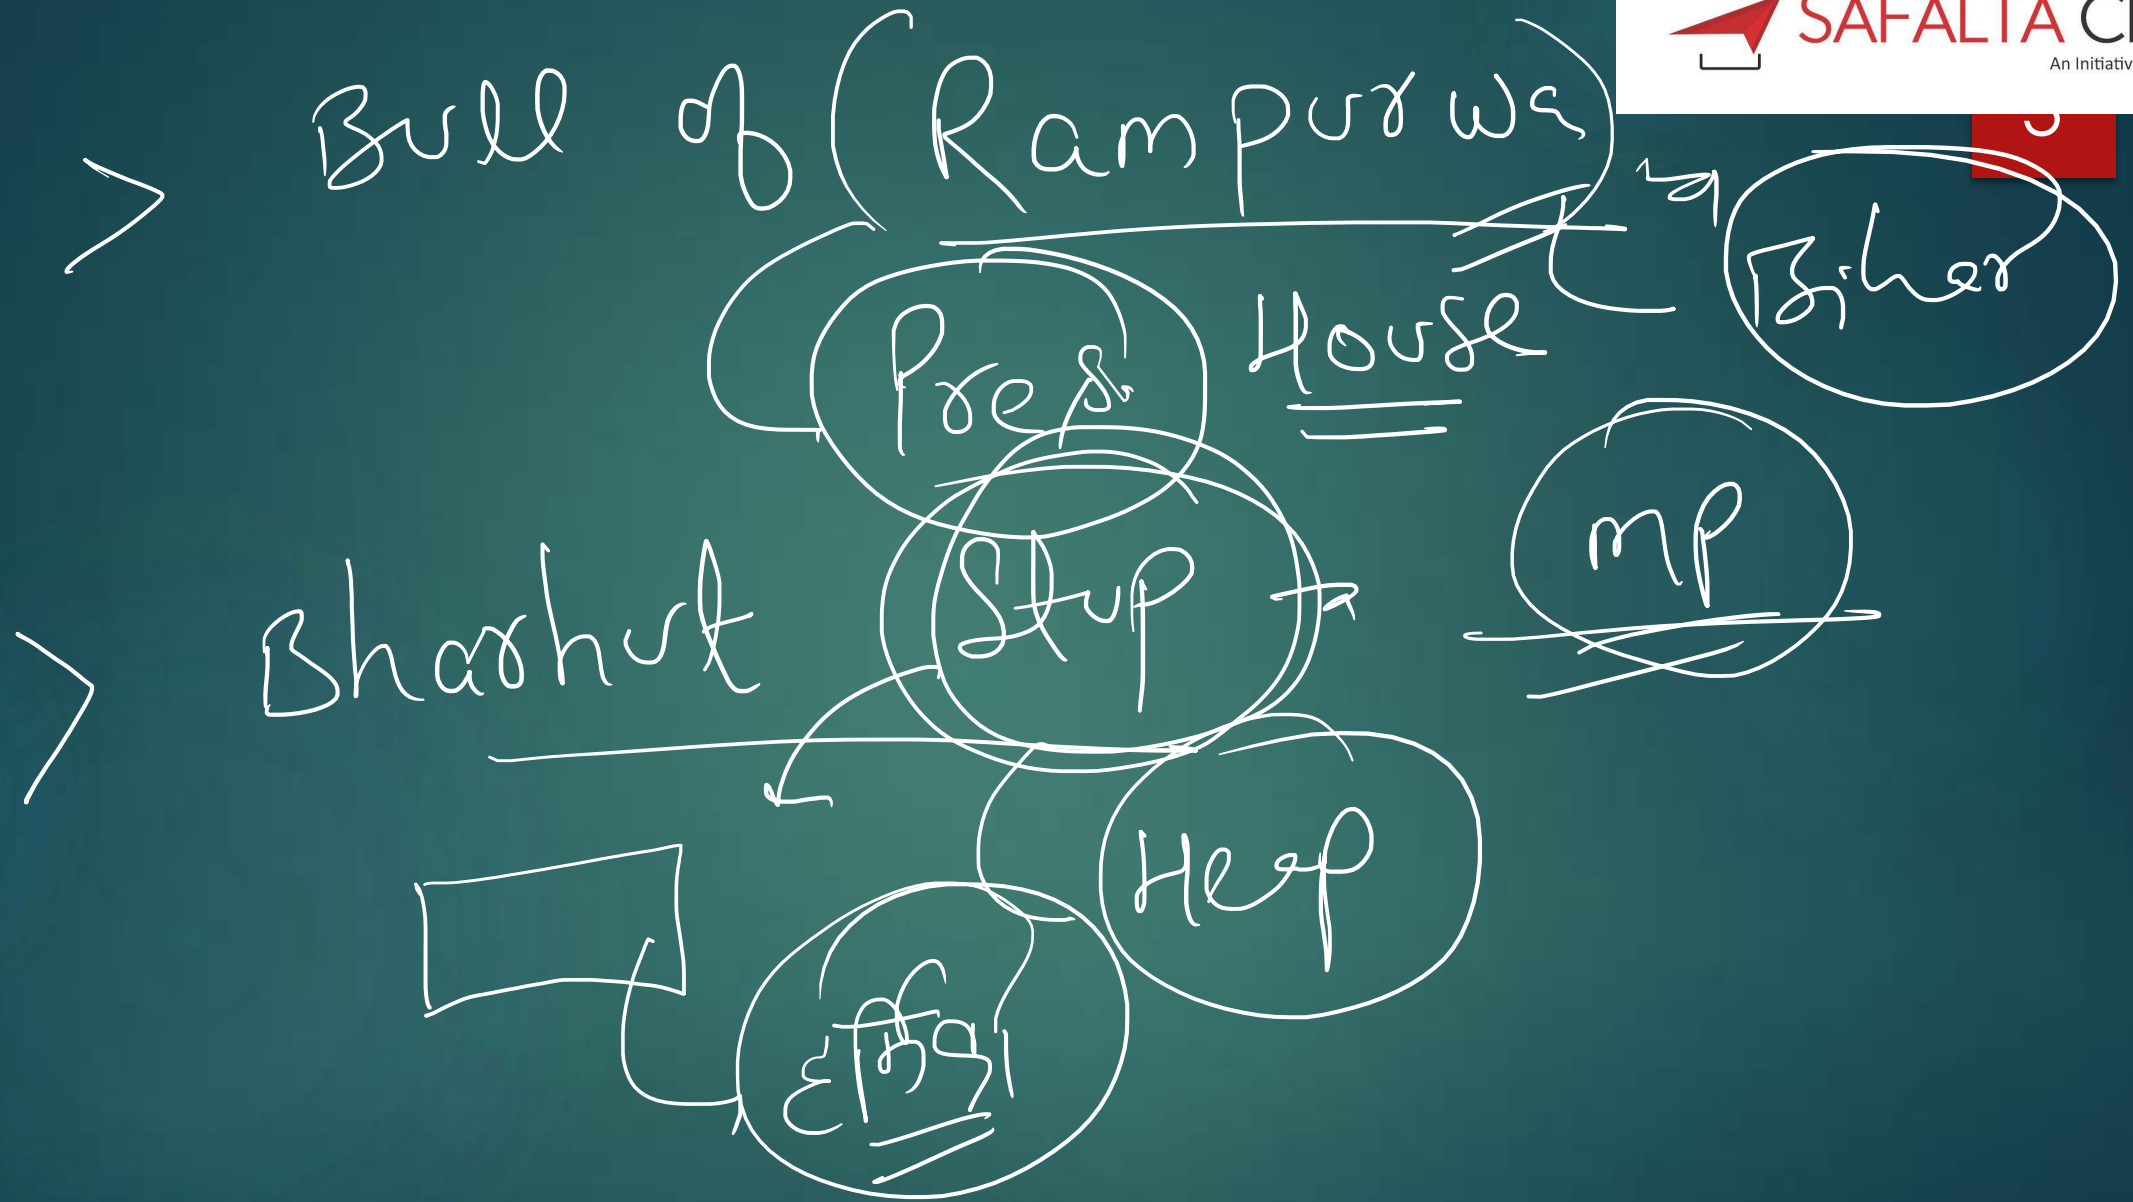 SAFALTA
An Initiativ
Bull of (Rampurwa)
Bihar
Pres. House
Bharhut Stup
MP
Heap